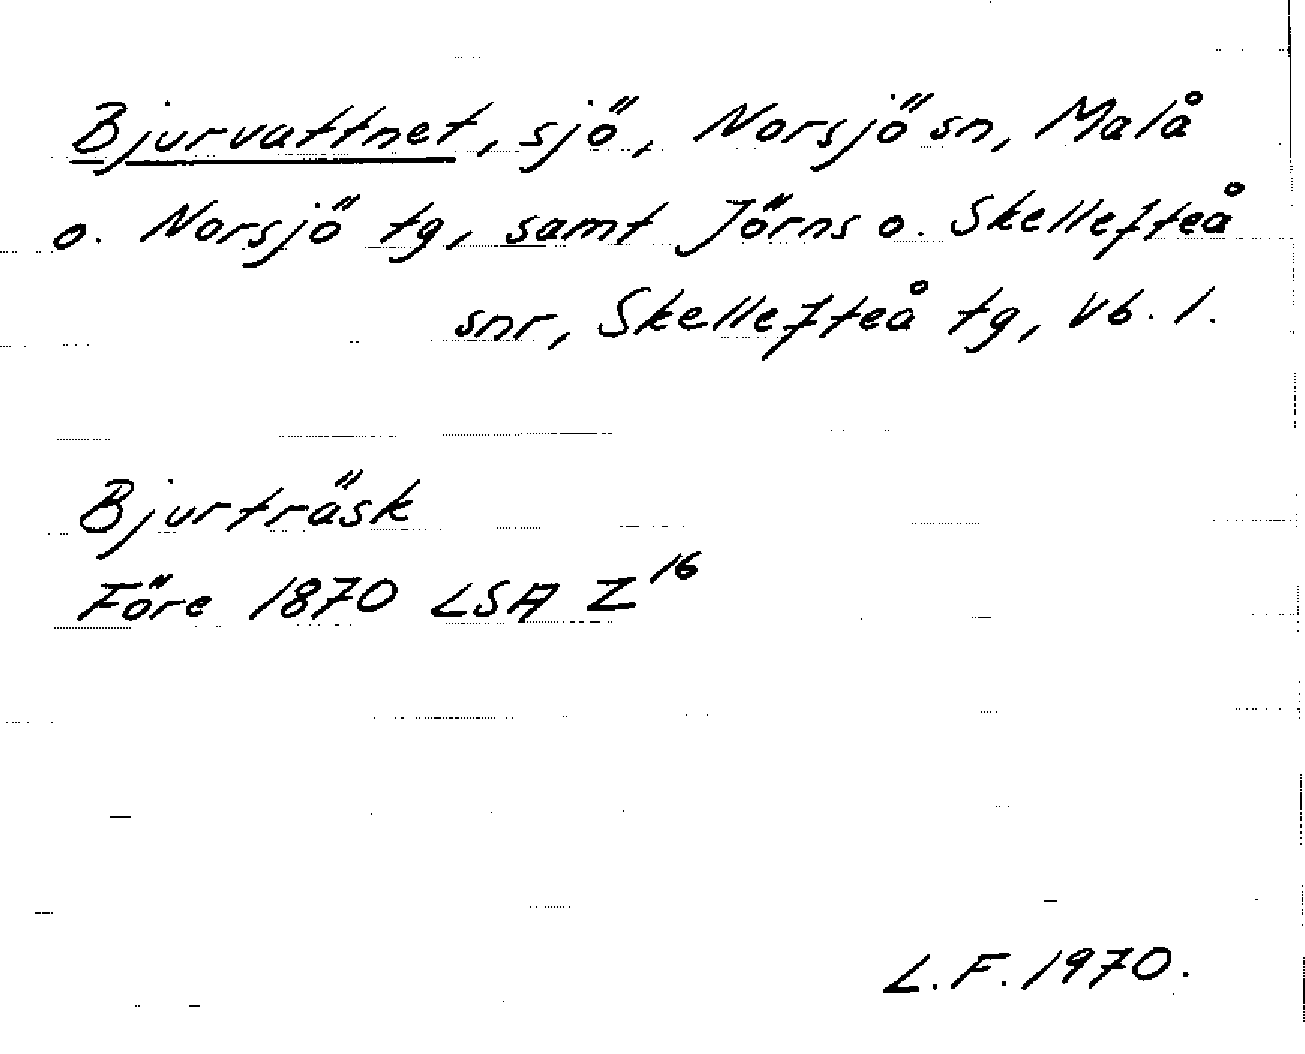 Bjurvattnet, sjö, Norsjö sn, Malå
o. Norsjö tg, samt Jörns o. Skellefteå
snr, Skellefteå tg, Vb. l.
Bjurträsk
Före 1870 LSA Z 16
L. F. 1970.